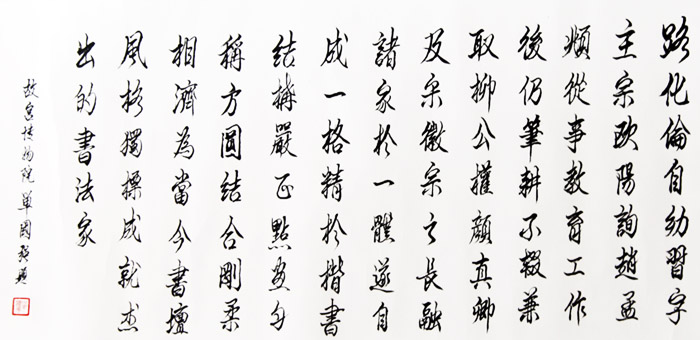 路化倫自幼習字
主宗歐陽詢趙孟
頫從事教育工作
後仍筆耕不輟兼
取柳公權顏真卿
及宋徽宗之長融
諸家於一體遂自
成一格精於楷書
結構嚴正點畫多
稱方圓結合剛柔
相濟為當今書壇
風格獨標成就杰
出的書法家
故宮博物院單國強題